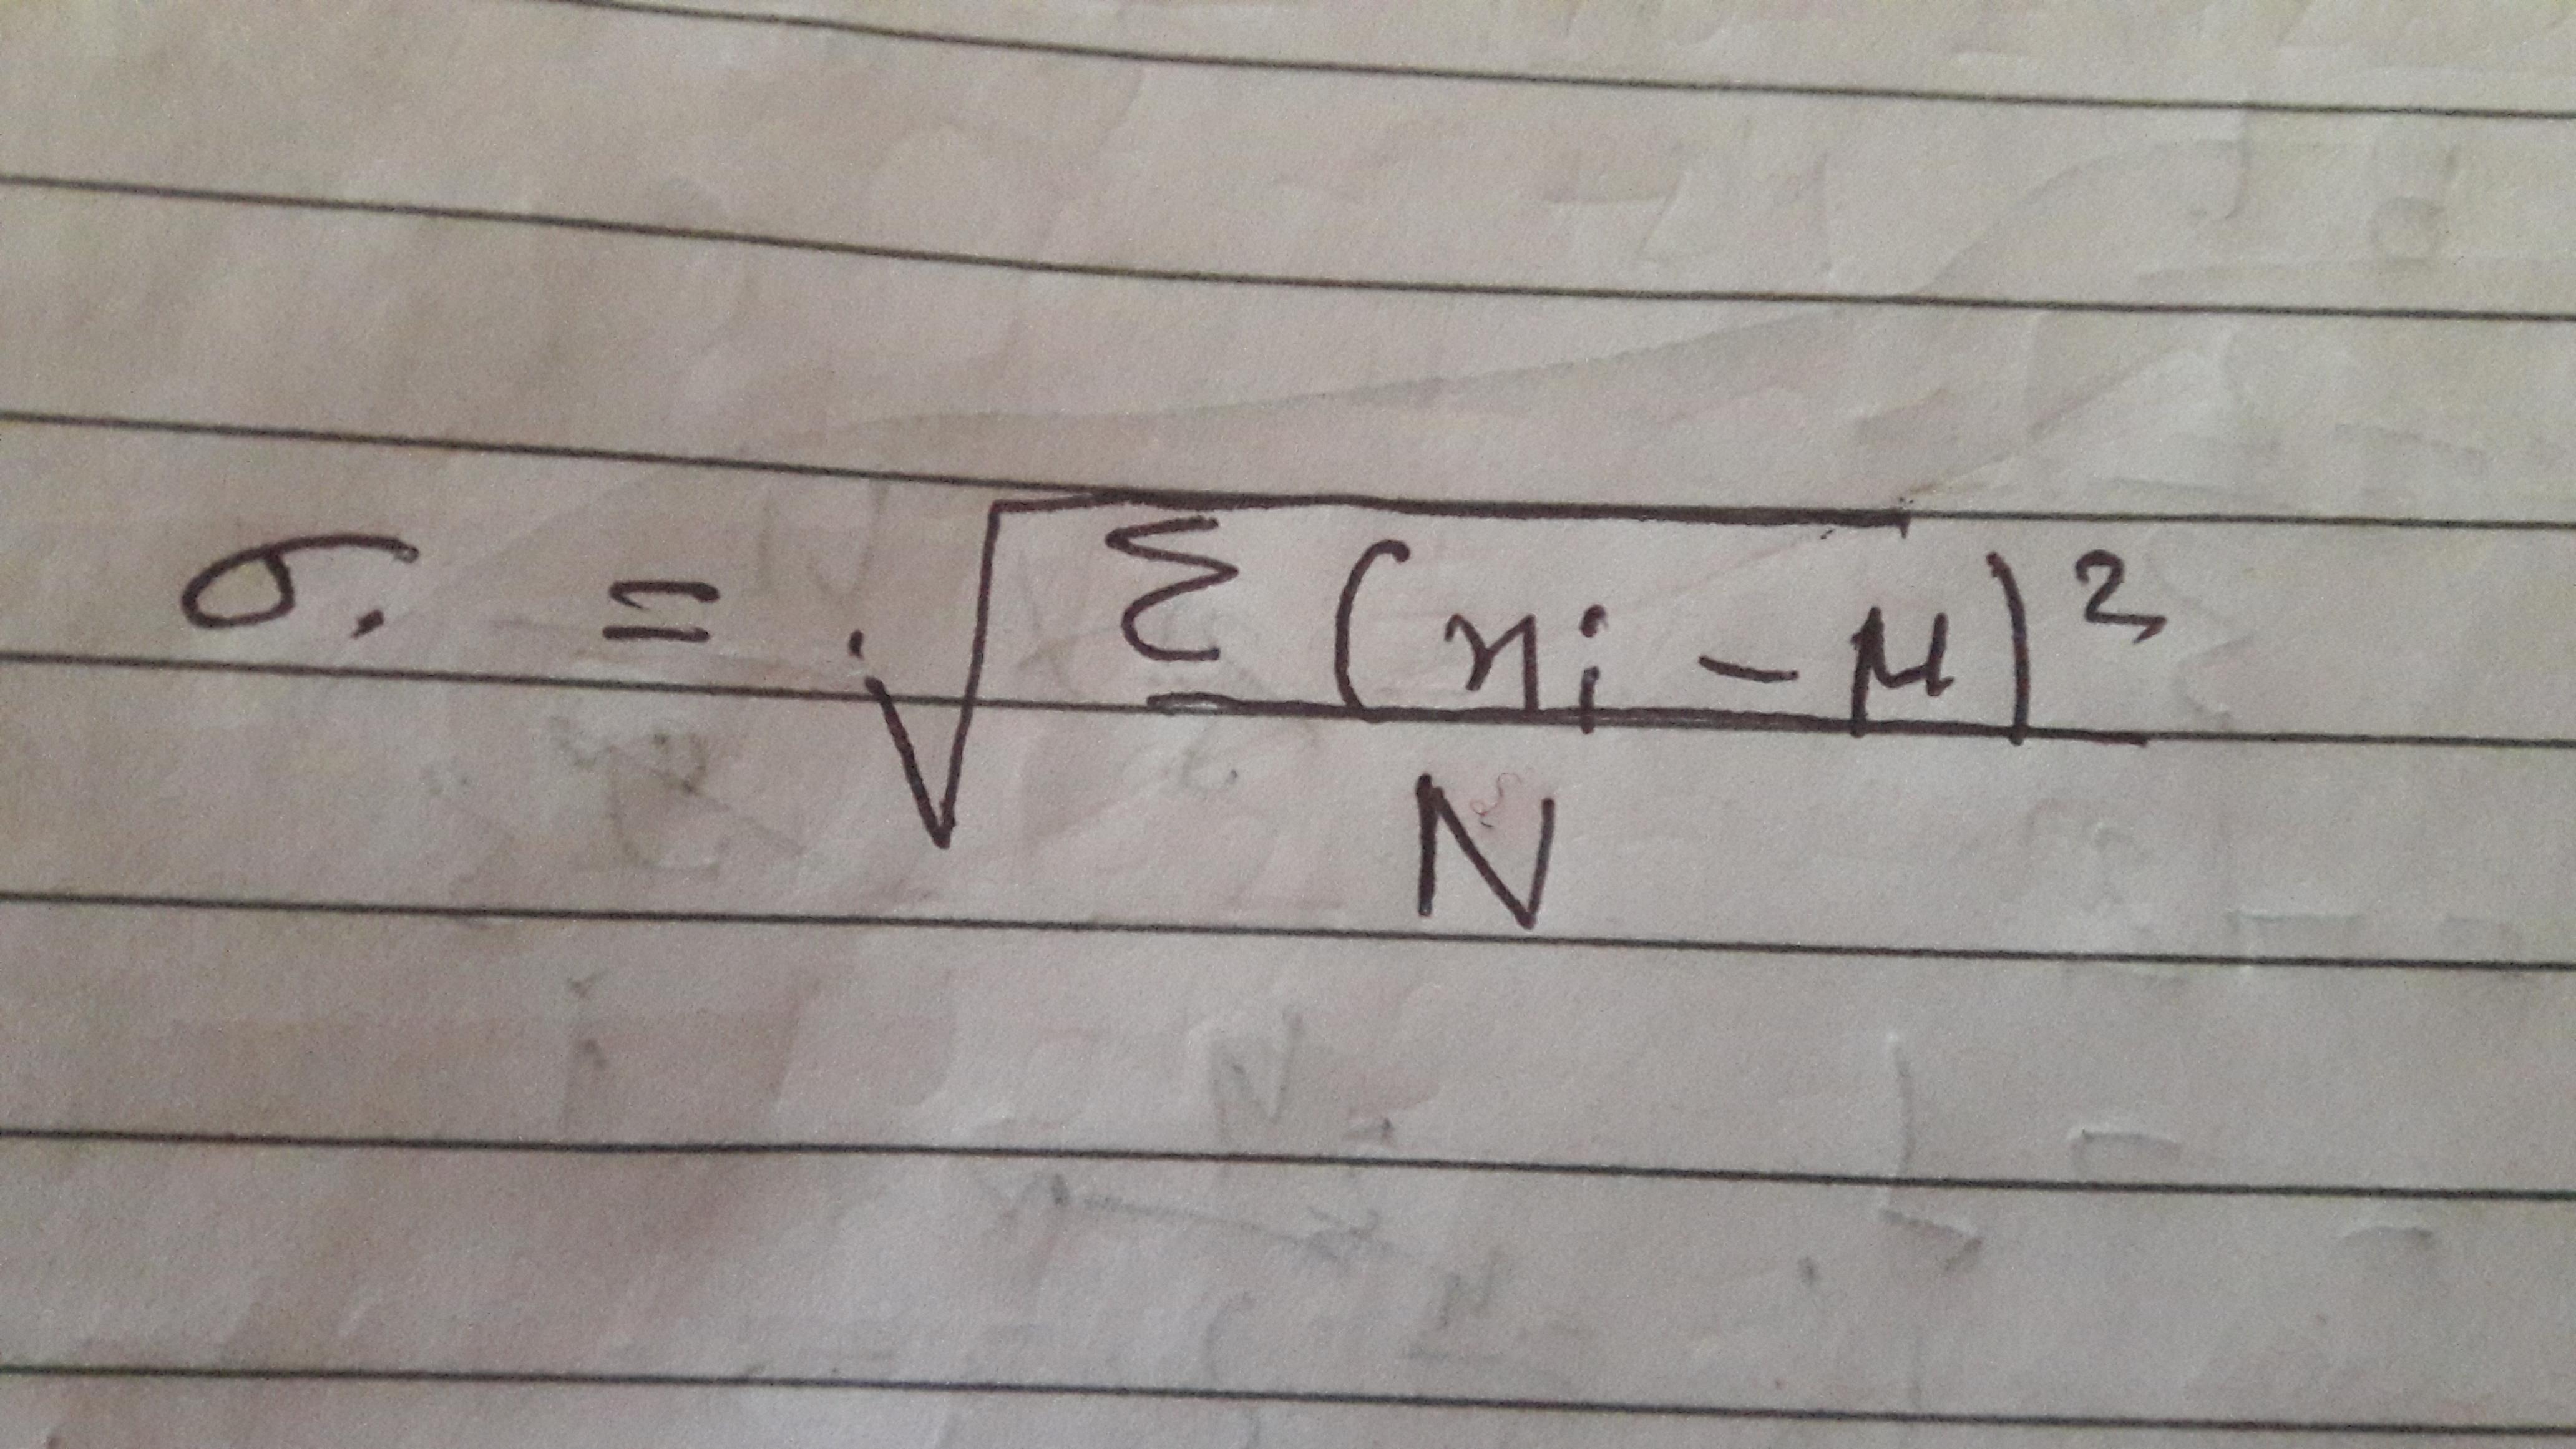 σ. = √ Σ (xi - μ)²
N